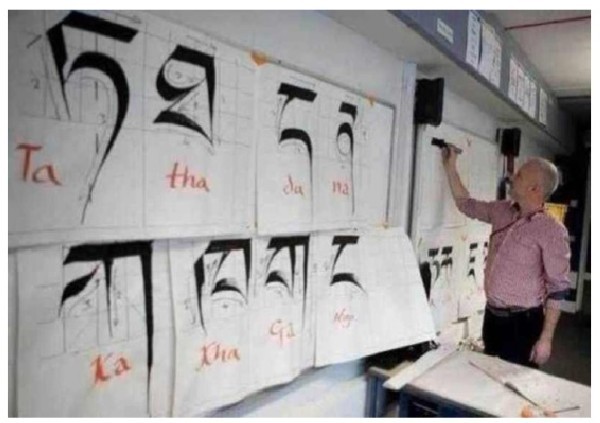 ཏ ཐ ད ན
Ta tha da na
ཀ ཁ ག ང
Ka Kha Ga Nga